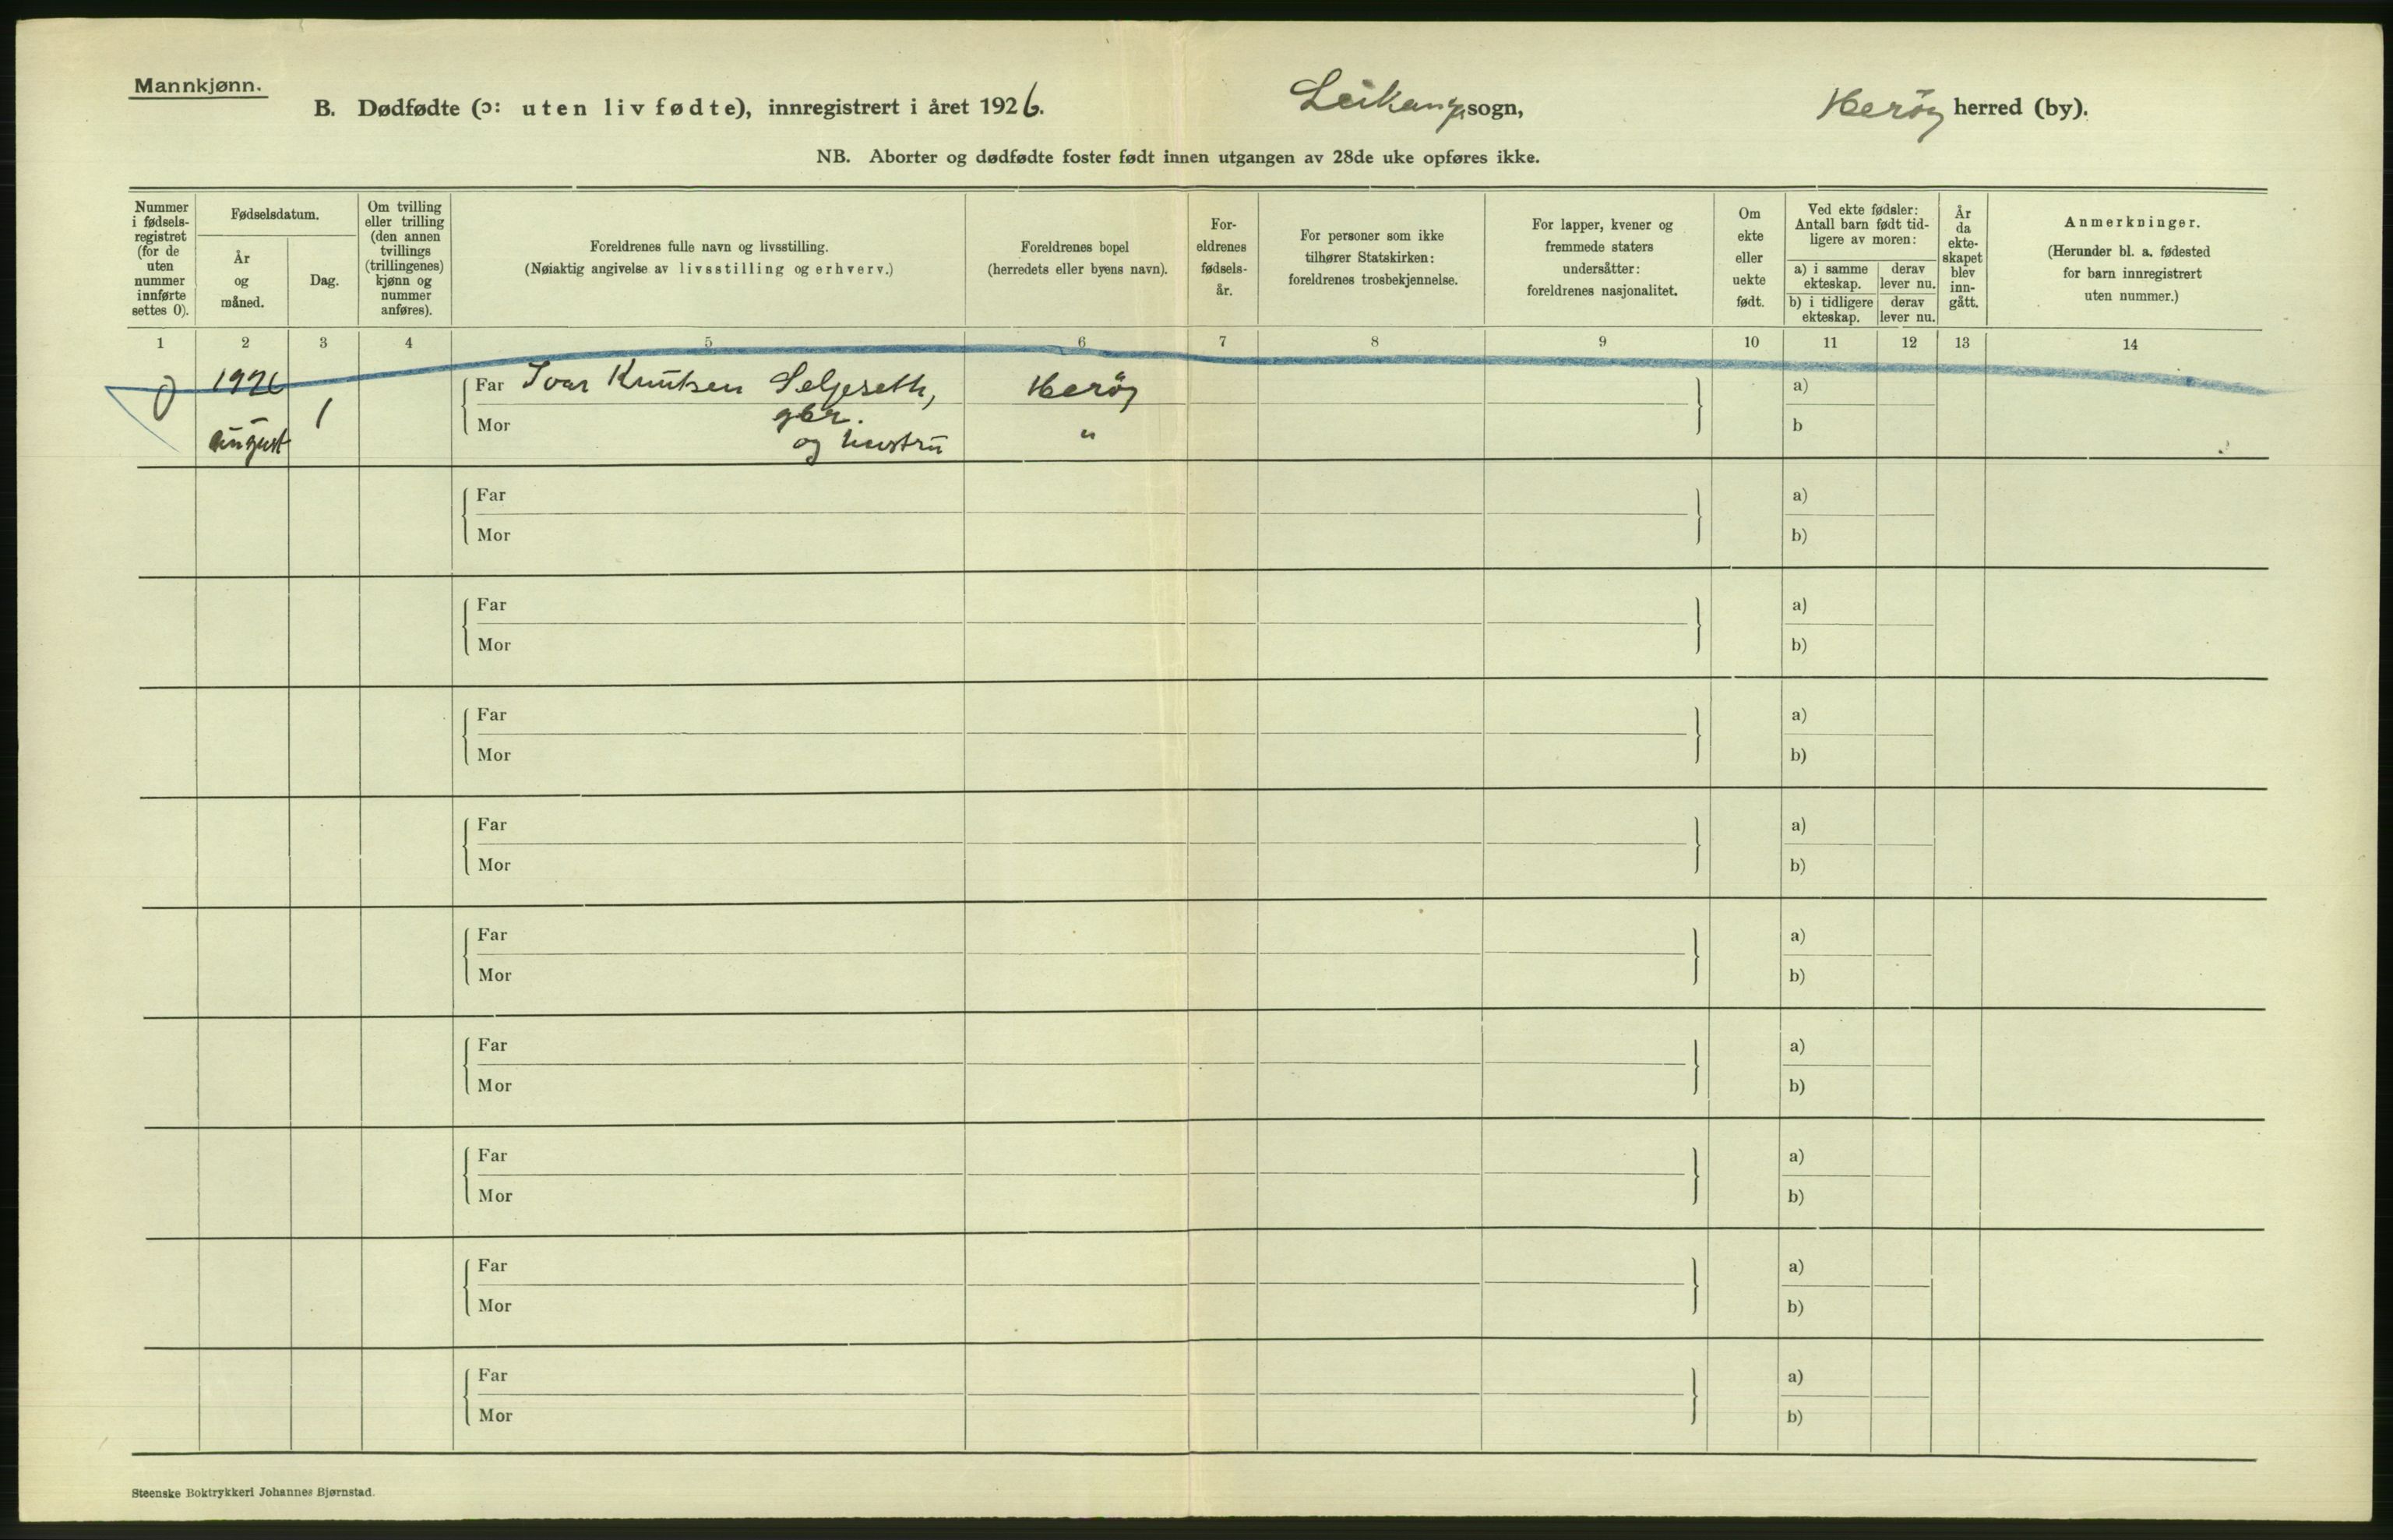 Mannkjønn.
B. Dødfødte (ɔ: uten liv fødte), innregistrert i året 1926.
Leikang sogn,
Herøy herred (by).
NB. Aborter og dødfødte foster født innen utgangen av 28de uke opføres ikke.
Nummer
i fødsels-
registret
(for de
uten
nummer
innførte
settes 0).
Fødselsdatum.
År
og
måned.
Dag.
Om tvilling
eller trilling
(den annen
tvillings
(trillingenes)
kjønn og
nummer
anføres).
Foreldrenes fulle navn og livsstilling.
(Nøiaktig angivelse av livsstilling og erhverv.)
Foreldrenes bopel
(herredets eller byens navn).
For-
eldrenes
fødsels-
år.
For personer som ikke
tilhører Statskirken:
foreldrenes trosbekjennelse.
For lapper, kvener og
fremmede staters
undersåtter:
foreldrenes nasjonalitet.
Om
ekte
eller
uekte
født.
Ved ekte fødsler:
Antall barn født tid-
ligere av moren:
a) i samme
ekteskap.
derav
lever nu.
b) i tidligere
ekteskap.
derav
lever nu.
År
da
ekte-
skapet
blev
inn-
gått.
Anmerkninger.
(Herunder bl. a. fødested
for barn innregistrert
uten nummer.)
1 2 3 4 5 6 7 8 9 10 11 12 13 14
0 1926 Far Ivar Knutsen Seljeseth, Herøy a)
1 gbr.
august Mor og hustru " b
Far a)
Mor b)
Far a)
Mor b)
Far a)
Mor b)
Far a)
Mor b)
Far a)
Mor b)
Far a)
Mor b)
Far a)
Mor b)
Far a)
Mor b)
Far a)
Mor b)
Steenske Boktrykkeri Johannes Bjørnstad.